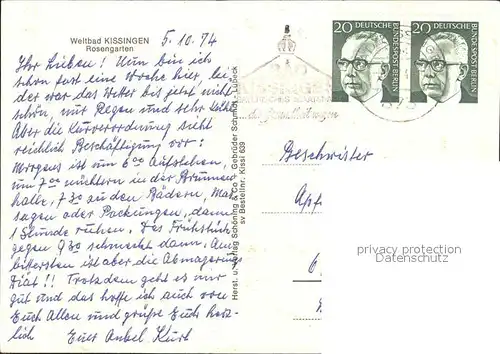 Weltbad KISSINGEN
Rosengarten
5.10.74
Ihr Lieben! Nun bin ich
schon fast eine Woche hier, lei
der war das Wetter bis jetzt nicht
schön, nur Regen und sehr kalt.
Aber die Kurverordnung sieht
reichlich Beschäftigung vor:
Morgens ist um 6 00 Aufstehen,
um 7 00 nüchtern in der Brunnen
halle, 7 30 zu den Bädern, Mas
sagen oder Packungen, dann
1 Stunde ruhen. Das Frühstück
gegen 9 30 schmeckt dann. Am
bittersten ist aber die Abmagerungs
Diät!! Trotzdem geht es mir
gut und das hoffe ich auch von
Euch Allen und grüße Euch herz
lich Euer Onkel Kurt
Herst. u. Verlag Schöning & Co + Gebrüder Schmidt, Lübeck
sv Bestellnr. Kissi 639
20 DEUTSCHE BUNDESPOST BERLIN
20 DEUTSCHE BUNDESPOST BERLIN
BAD
KISSINGEN
Geschwister
privacy protection
oldthing.de